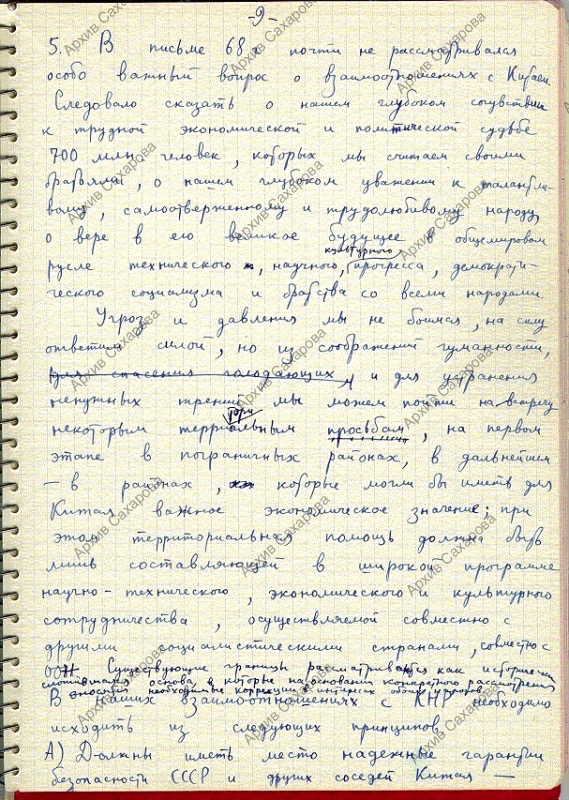 -9-
5. В письме 68 г почти не рассматривался
особо важный вопрос о взаимоотношениях с Китаем
Следовало сказать о нашем глубоком сочувствии
к трудной экономической и политической судьбе
700 млн человек, которых мы считаем своими
братьями, о нашем глубоком уважении к талантли-
вому, самоотверженному и трудолюбивому народу,
о вере в его великое будущее в общемировом
культурного
русле технического, научного, прогресса, демократи-
ческого социализма и братства со всеми народами.
Угроз и давления мы не боимся, на силу
ответим силой, но из соображений гуманности,
для спасения голодающих, и для устранения
ненужных трений мы можем пойти на встречу
некоторым территориальным просьбам, на первом
этапе в пограничных районах, в дальнейшем
— в районах, которые могли бы иметь для
Китая важное экономическое значение; при
этом территориальная помощь должна быть
лишь составляющей в широкой программе
научно-технического, экономического и культурного
сотрудничества, осуществляемой совместно с
другими социалистическими странами, совместно с
ООН Существующие границы рассматриваются как исторически
основа, в которые на основании конкретного рассмотрения
вносятся необходимые коррекции в интересах обоих народов.
В наших взаимоотношениях с КНР необходимо
исходить из следующих принципов
А) Должны иметь место надежные гарантии
безопасности СССР и других соседей Китая —
Архив Сахарова